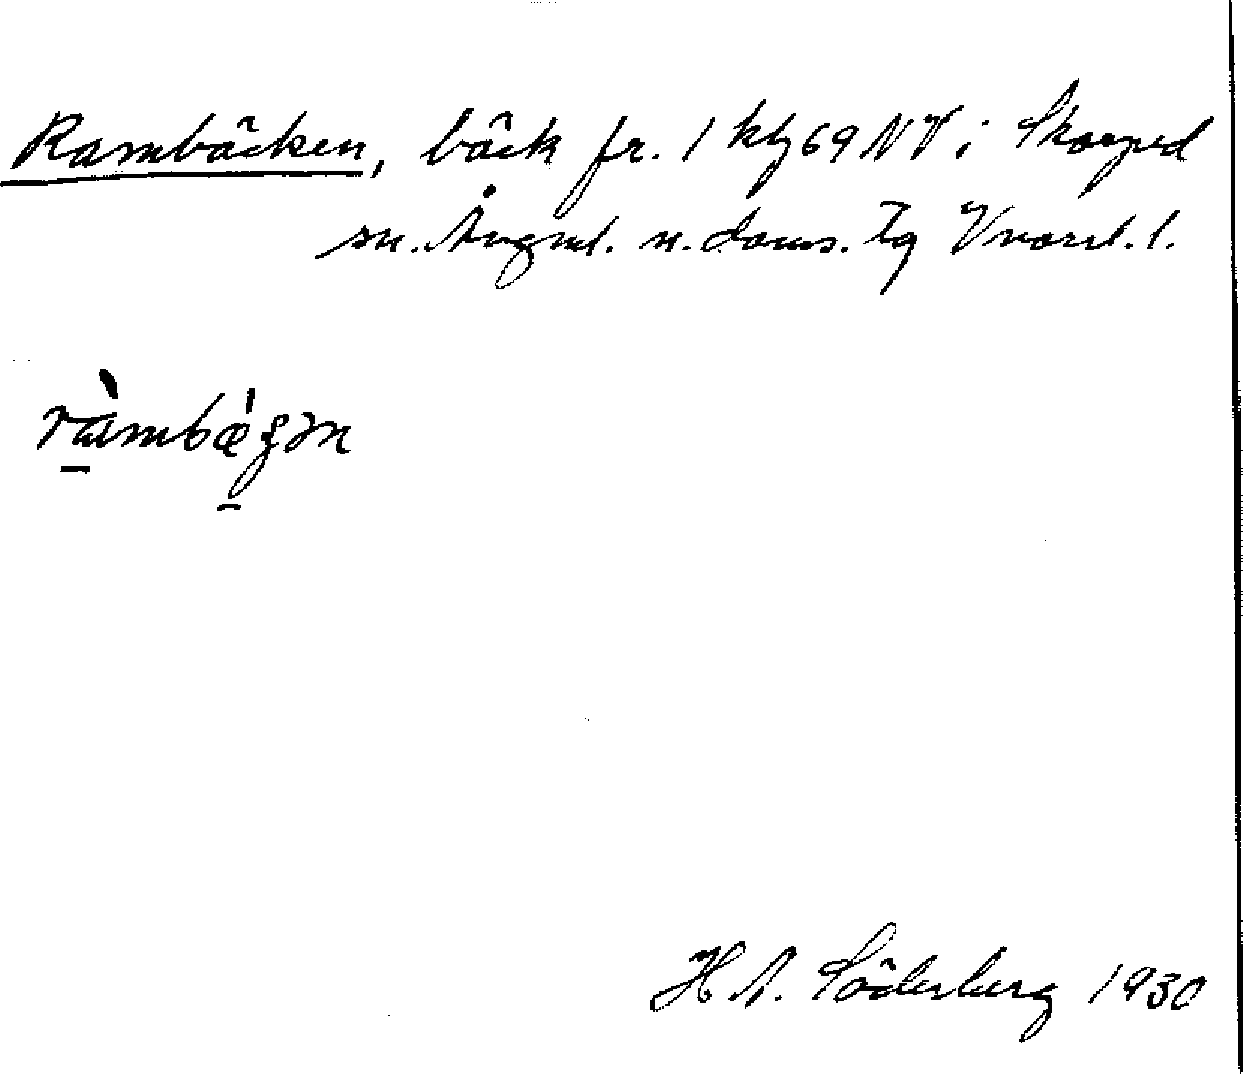 Rambäcken, bäck fr. 1 kbg 69 NV i Skorped
sn. Ångml. n. doms. tg Vnorrl. l.
ràmbæ̀ʒən
H A. Söderberg 1930